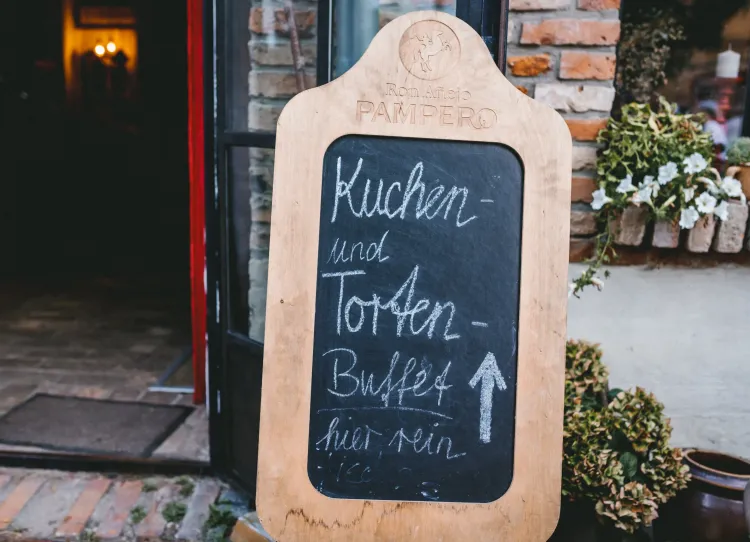 Ron Añejo
PAMPERO
Kuchen-
und
Torten-
Buffet
hier rein